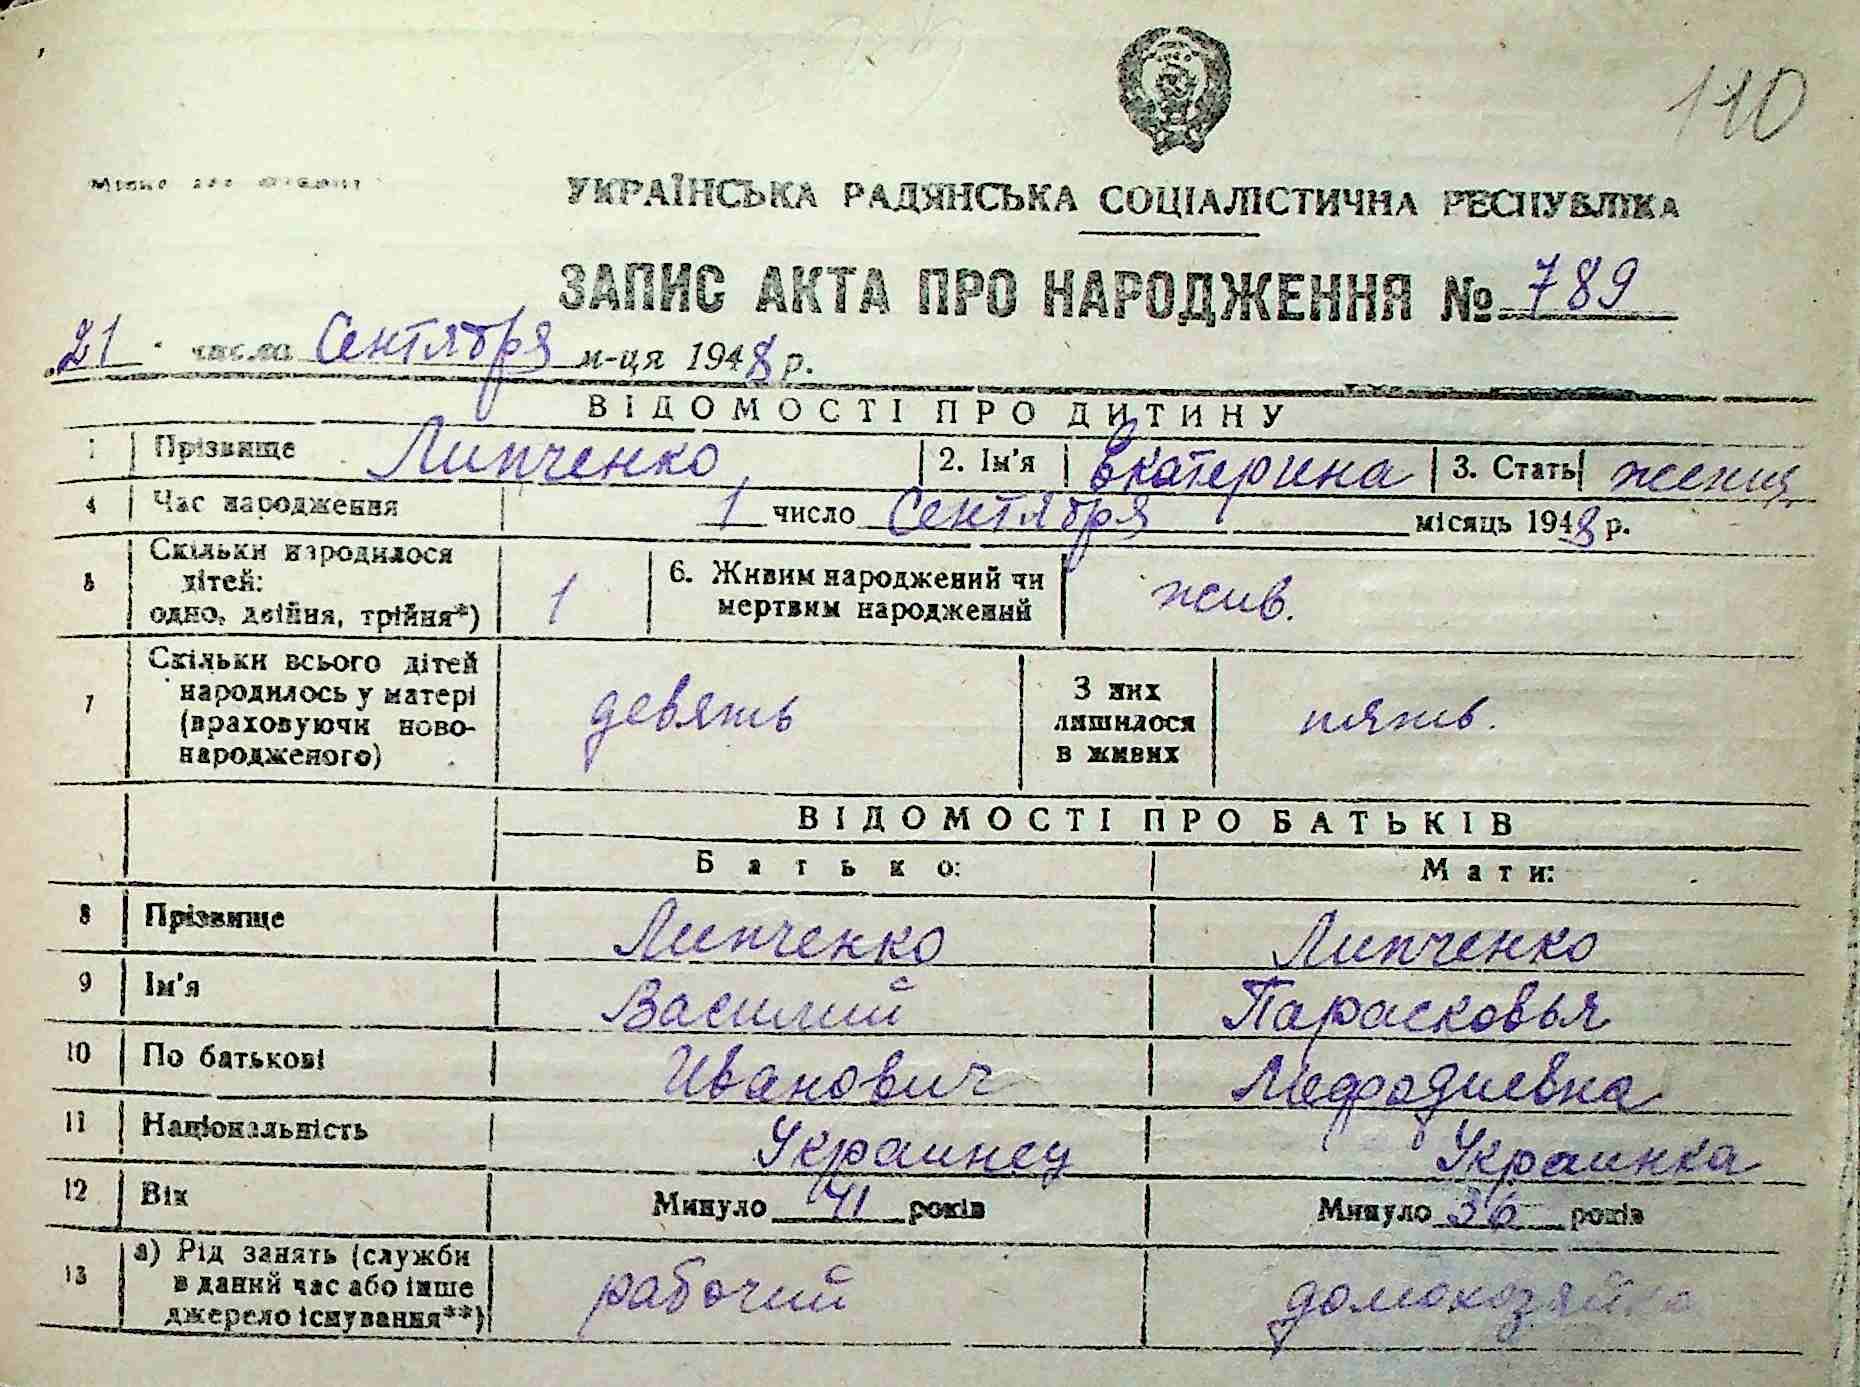 110
УКРАЇНСЬКА РАДЯНСЬКА СОЦІАЛІСТИЧНА РЕСПУБЛІКА
ЗАПИС АКТА ПРО НАРОДЖЕННЯ № 789
21 числа Сентября м-ця 1948 р.
ВІДОМОСТІ ПРО ДИТИНУ
1 Прізвище Липченко 2. Ім'я Екатерина 3. Стать женщ
4 Час народження 1 число Сентября місяць 1948 р.
5 Скільки народилося дітей: одно, двійня, трійня*) 1 6. Живим народжений чи мертвим народжений жив.
7 Скільки всього дітей народилось у матері (враховуючи ново-народженого) девять З них лишилося в живих пять.
ВІДОМОСТІ ПРО БАТЬКІВ
Батько: Мати:
8 Прізвище Липченко Липченко
9 Ім'я Василий Парасковья
10 По батькові Иванович Мефодиевна
11 Національність Украинец Украинка
12 Вік Минуло 41 років Минуло 36 років
13 а) Рід занять (служби в даний час або інше джерело існування**) рабочий домохозяйка